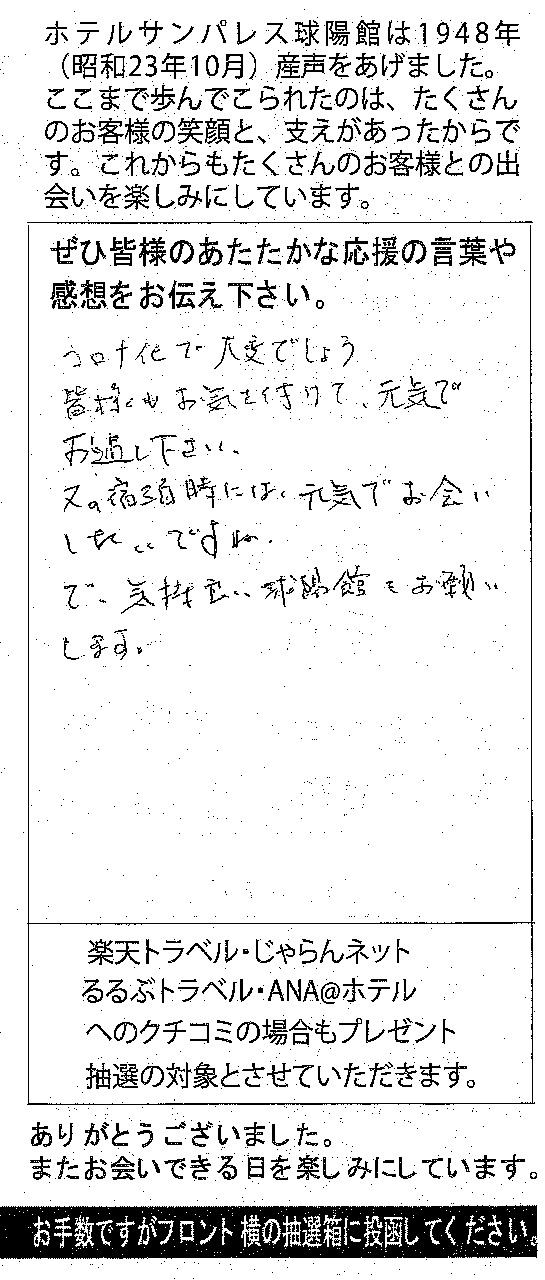 ホテルサンパレス球陽館は1948年
（昭和23年10月）産声をあげました。
ここまで歩んでこられたのは、たくさん
のお客様の笑顔と、支えがあったからで
す。これからもたくさんのお客様との出
会いを楽しみにしています。
ぜひ皆様のあたたかな応援の言葉や
感想をお伝え下さい。
コロナ化で大変でしょう
皆様もお気を付けて、元気で
お過し下さい、
又の宿泊時には、元気でお会い
したいですね、
で、気持良い球陽館をお願い
します。
楽天トラベル・じゃらんネット
るるぶトラベル・ANA@ホテル
へのクチコミの場合もプレゼント
抽選の対象とさせていただきます。
ありがとうございました。
またお会いできる日を楽しみにしています。
お手数ですがフロント横の抽選箱に投函してください。